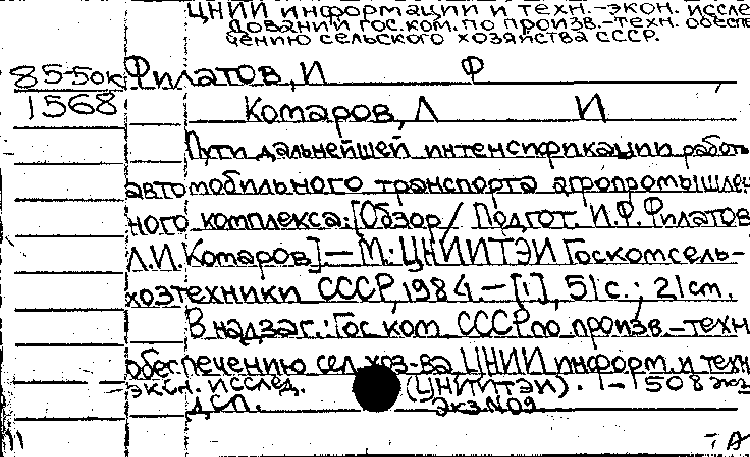 ЦНИИ информации и техн.-экон. иссле
дований Гос. ком. по произв.-техн. обесп
чению сельского хозяйства СССР.
85-5ок Филатов, И Ф
1568 Комаров, Л И
Пути дальнейшей интенсификации работ
автомобильного транспорта агропромышлен
ного комплекса: [Обзор / Подгот. И.Ф. Филатов
Л.И. Комаров] — М.: ЦНИИТЭИ Госкомсель-
хозтехники СССР, 1984. — [1], 51 с.; 21 см.
В надзаг.: Гос ком. СССР по произв.-техн
обеспечению сел. хоз-ва ЦНИИ информ. и техн
экон. исслед. (ЦНИИТЭИ). 1-508 экз
ДСП. Экз. N09.